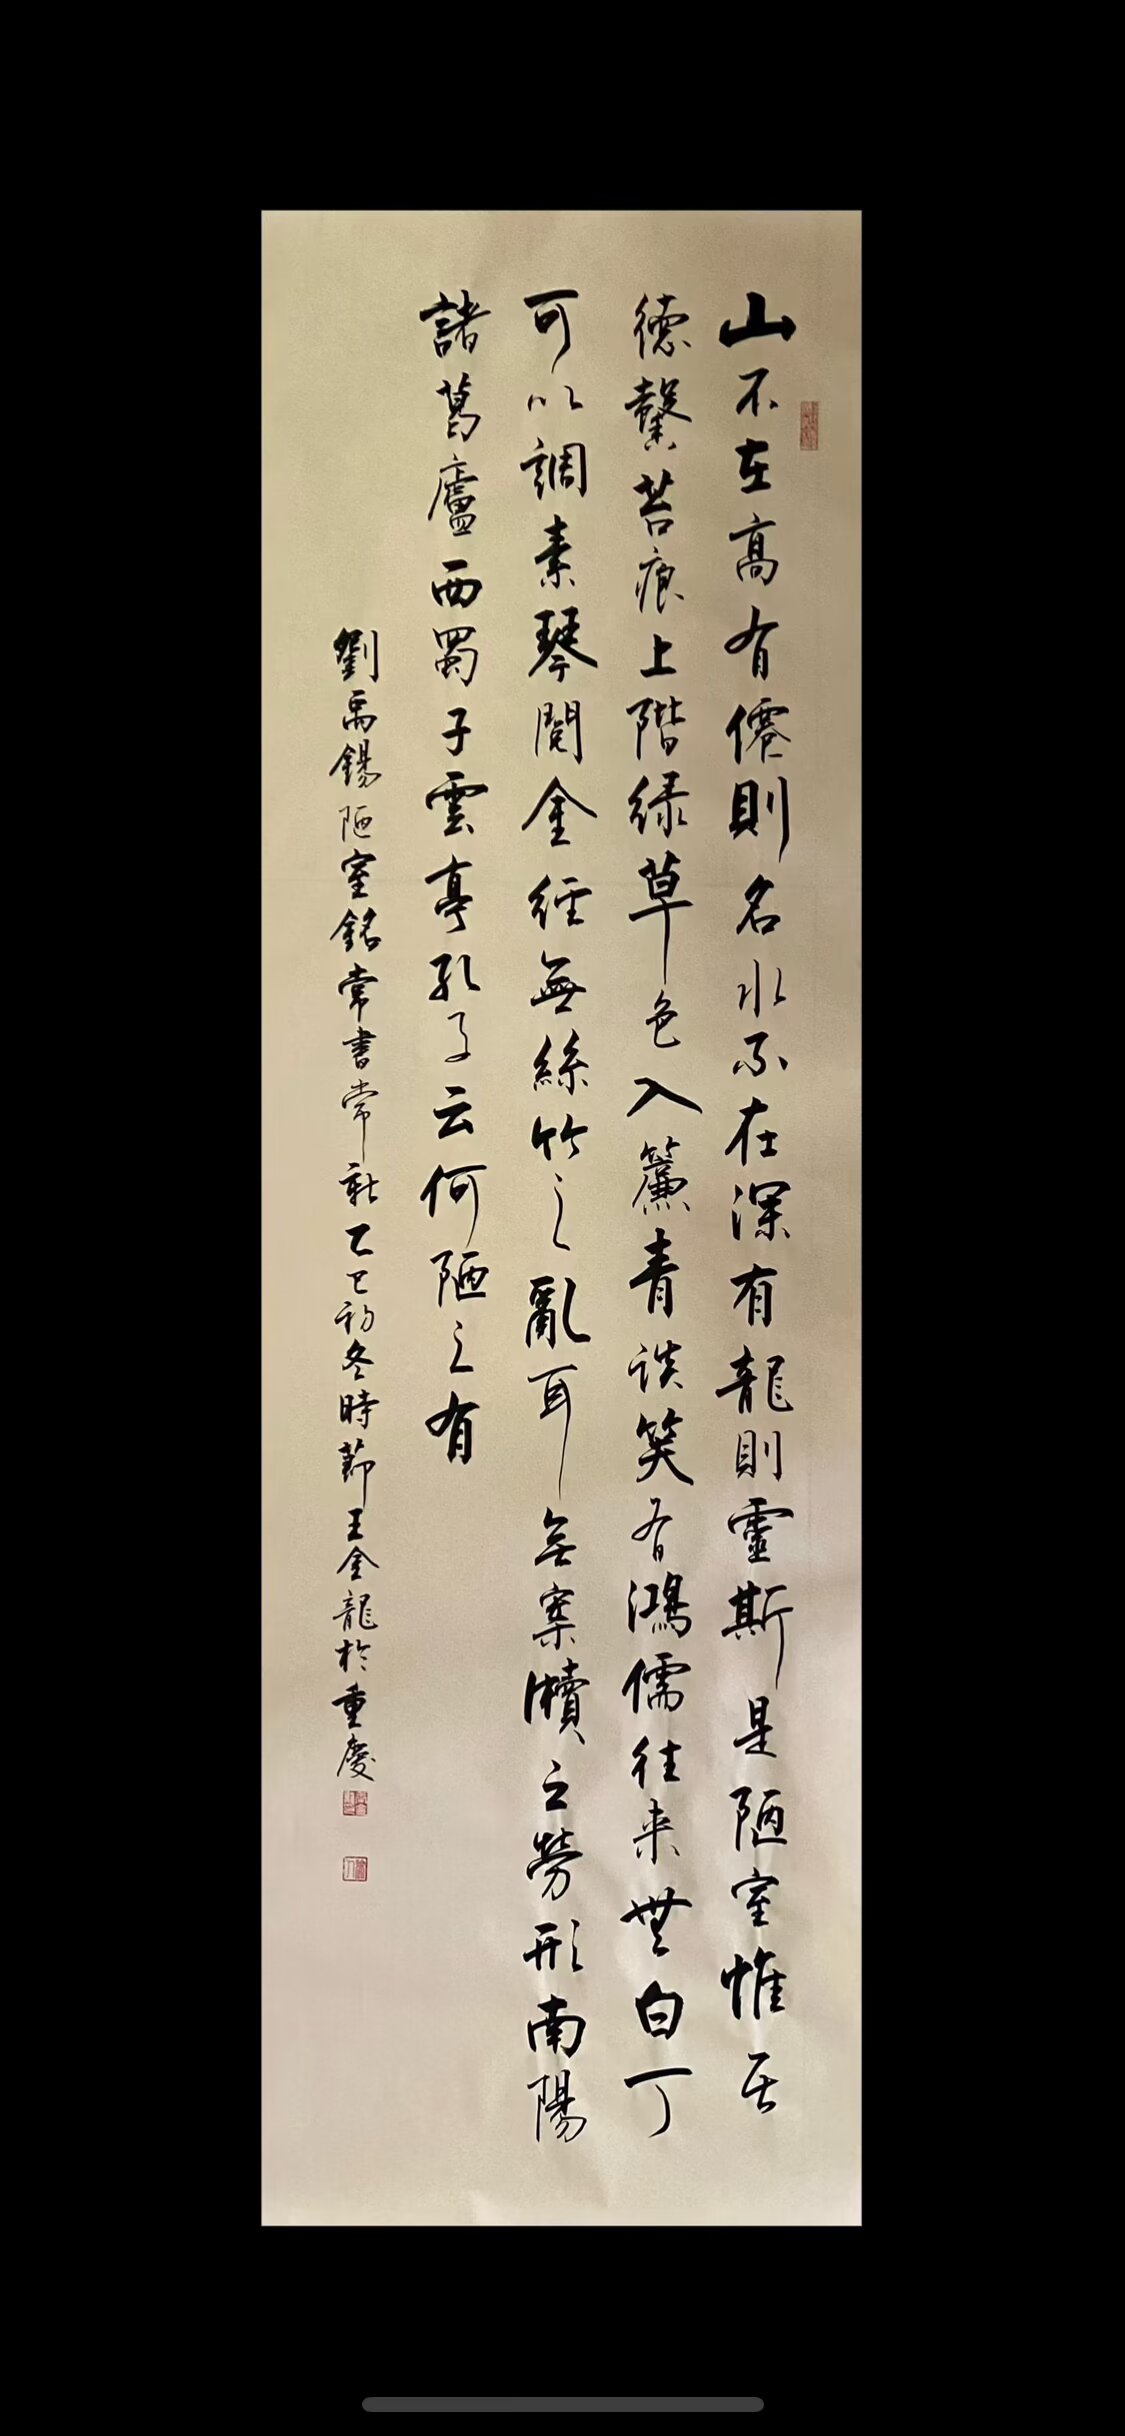 山不在高有僊則名水不在深有龍則靈斯是陋室惟吾
德馨苔痕上階緑草色入簾青談笑有鴻儒往来無白丁
可以調素琴閲金經無絲竹之亂耳無案牘之勞形南陽
諸葛廬西蜀子雲亭孔子云何陋之有
劉禹錫陋室銘常書常新乙巳初冬時節王金龍於重慶